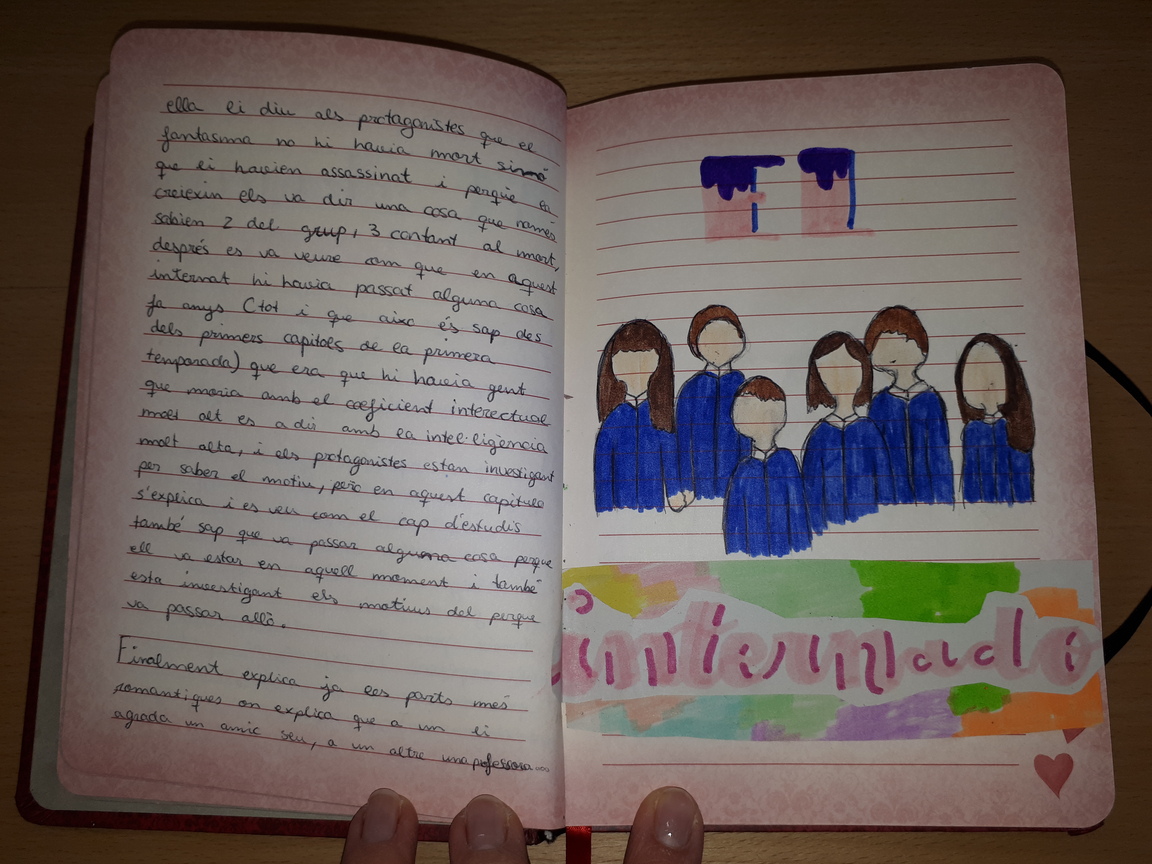 ella li diu als protagonistes que el
fantasma no hi havia mort sinó
que li havien assassinat i perquè la
creiexin els va dir una cosa que només
sabien 2 del grup, 3 contant al mort,
després es va veure com que en aquest
internat hi havia passat alguna cosa
fa anys (tot i que aixo és sap des
dels primers capitols de la primera
temporada) que era que hi havia gent
que moria amb el coeficient interectual
molt alt es a dir amb la intel·ligència
molt alta, i els protagonistes estan investigant
per saber el motiu, però en aquest capitulo
s'explica i es veu com el cap d'estudis
també sap que va passar alguna cosa perque
ell va estar en aquell moment i també
esta investigant els motius del perque
va passar allò.
Finalment explica ja les parts més
romantiques on explica que a un li
agrada un amic seu, a un altre una professora...
internado